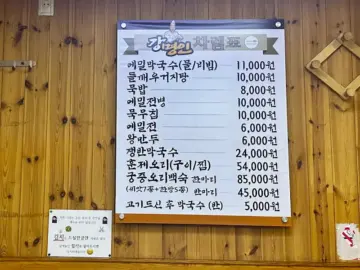 강명인 차림표
메밀막국수(물/비빔) 11,000원
물매우거지탕 10,000원
묵밥 8,000원
메밀전병 10,000원
묵무침 10,000원
메밀전 6,000원
왕만두 6,000원
쟁반막국수 24,000원
훈제오리(구이/찜) 54,000원
궁중오리백숙 한마리 85,000원
한마리 45,000원
고기드신 후 막국수 (한) 5,000원